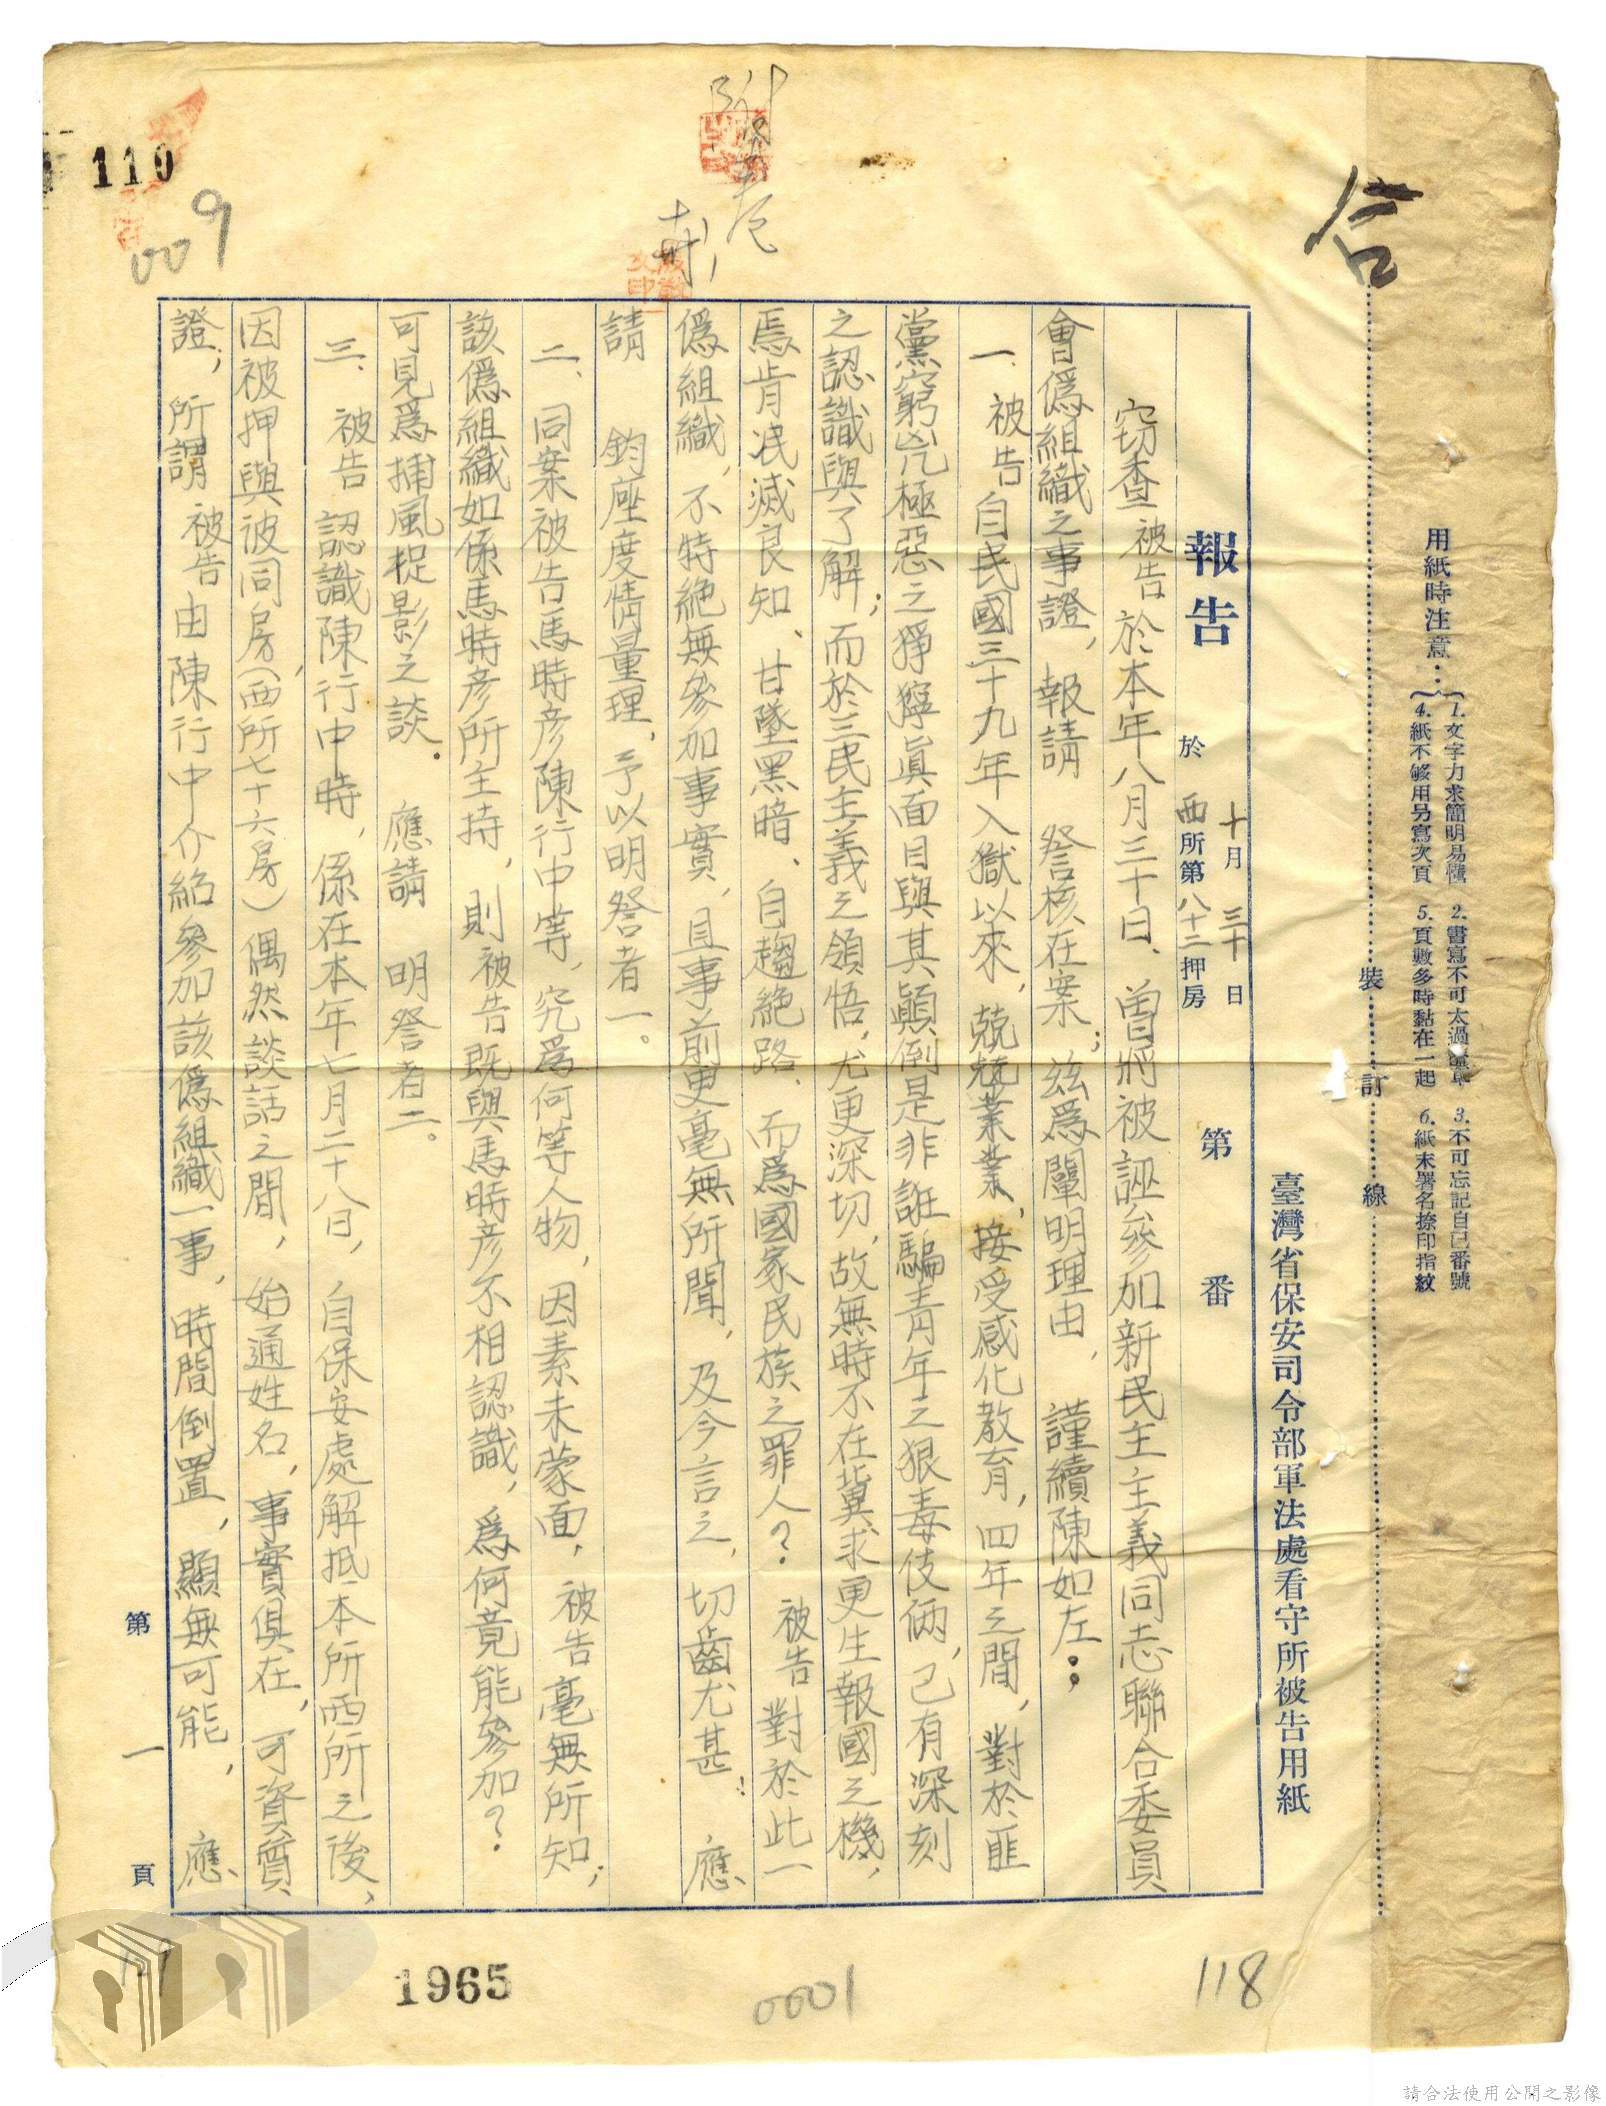 用紙時注意：
1.文字力求簡明易懂 2.書寫不可太過潦草 3.不可忘記自己番號
4.紙不够用另寫次頁 5.頁數多時黏在一起 6.紙末署名捺印指紋
裝 訂 線
合
臺灣省保安司令部軍法處看守所被告用紙
報告 於 十月三十日 西所第八十二押房 第 番
窃查被告於本年八月三十日、曾將被誣參加新民主主義同志聯合委員
會偽組織之事證，報請 詧核在案；茲為闡明理由，謹續陳如左：
一、被告自民國三十九年入獄以來，兢兢業業、接受感化教育，四年之間，對於匪
黨窮兇極惡之猙獰真面目與其顛倒是非誑騙青年之狠毒伎倆，已有深刻
之認識與了解；而於三民主義之領悟，尤更深切，故無時不在冀求更生報國之機，
焉肯泯滅良知、甘墜黑暗、自趨絕路、而為國家民族之罪人？被告對於此一
偽組織，不特絕無參加事實，且事前更毫無所聞，及今言之，切齒尤甚！應
請 鈞座度情量理，予以明詧者一。
二、同案被告馬時彥陳行中等，究為何等人物，因素未蒙面，被告毫無所知；
該偽組織如係馬時彥所主持，則被告既與馬時彥不相認識，為何竟能參加？
可見為捕風捉影之談。應請 明詧者二。
三、被告認識陳行中時，係在本年七月二十八日，自保安處解抵本所西所之後，
因被押與彼同房（西所七十六房）偶然談話之間，始通姓名，事實俱在，可資質
證；所謂被告由陳行中介紹參加該偽組織一事，時間倒置，顯無可能，應
第 一 頁
110
009
1965
0001
118
請合法使用公開之影像